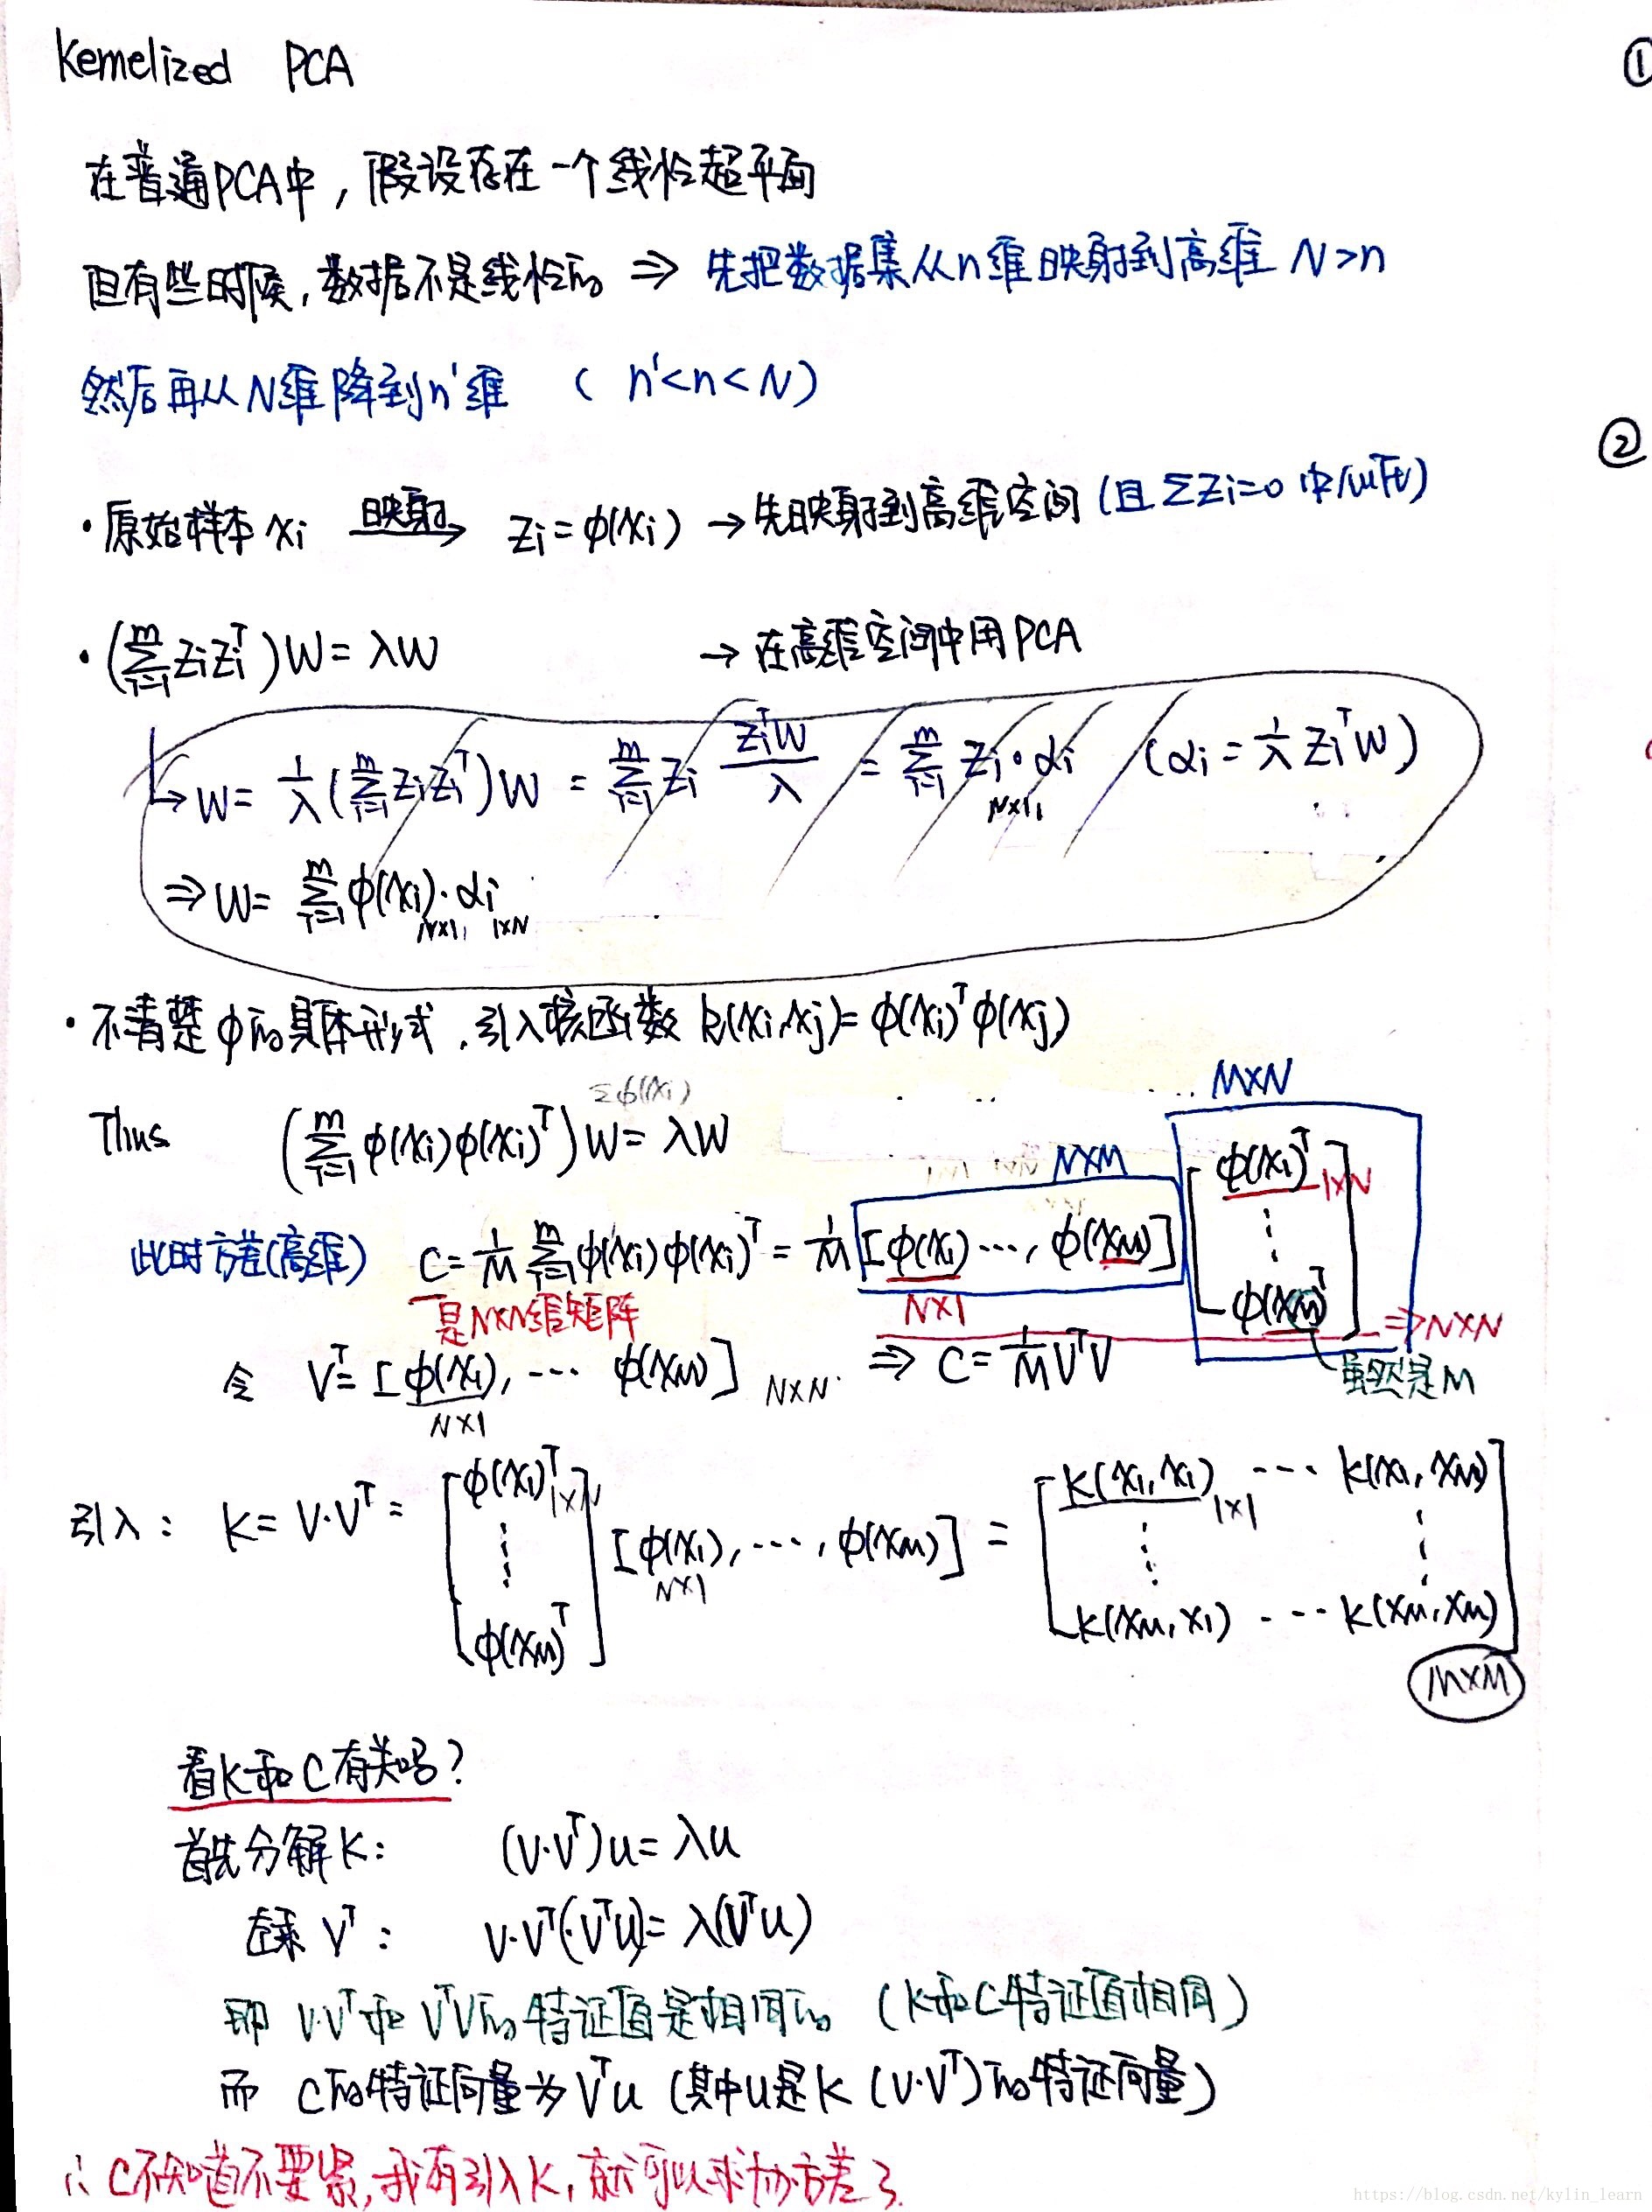 Kernelized PCA
①
在普通PCA中，假设存在一个线性超平面
但有些时候，数据不是线性的 ⇒ 先把数据集从n维映射到高维 N>n
然后再从N维降到n'维 （ n'<n<N）
②
·原始样本 xi 映射→ zi=ϕ(xi) →先映射到高维空间 (且 Σzi=0
·(Σ_{i=1}^m zi zi^T)W = λW →在高维空间中用PCA
↳ W = 1/λ (Σ_{i=1}^m zi zi^T)W = Σ_{i=1}^m zi (zi^T W)/λ = Σ_{i=1}^m zi·αi (αi = 1/λ zi^T W)
N×1
⇒ W = Σ_{i=1}^m ϕ(xi)·αi
N×1 1×N
·不清楚ϕ的具体形式，引入核函数 k(xi,xj)=ϕ(xi)^T ϕ(xj)
Σϕ(xi)
Thus (Σ_{i=1}^m ϕ(xi)ϕ(xi)^T)W = λW
N×M M×N
此时方差(高维) C = 1/M Σ_{i=1}^m ϕ(xi)ϕ(xi)^T = 1/M [ϕ(x1)···, ϕ(xM)] [ϕ(x1)^T ⋮ ϕ(xM)^T]
1×N
是N×N维矩阵 N×1 ⇒N×N
虽然是M
令 V^T = [ϕ(x1), ··· ϕ(xM)] N×N ⇒ C = 1/M V^T V
N×1
引入： K = V·V^T = [ϕ(x1)^T ⋮ ϕ(xM)^T] [ϕ(x1), ···, ϕ(xM)] = [k(x1,x1) ··· k(x1,xM) ⋮ ⋮ k(xM,x1) ··· k(xM,xM)]
1×N N×1 1×1
M×M
看K和C有关吗？
首先分解K： (V·V^T)u = λu
左乘 V^T： V·V^T(·V^T u) = λ(V^T u)
即 V·V^T 和 V^T V的特征值是相同的 （K和C特征值相同）
而 C的特征向量为V^T u (其中u是K (V·V^T)的特征向量)
∴ C不知道不要紧，我有引入K，就可以求协方差了.
https://blog.csdn.net/kylin_learn